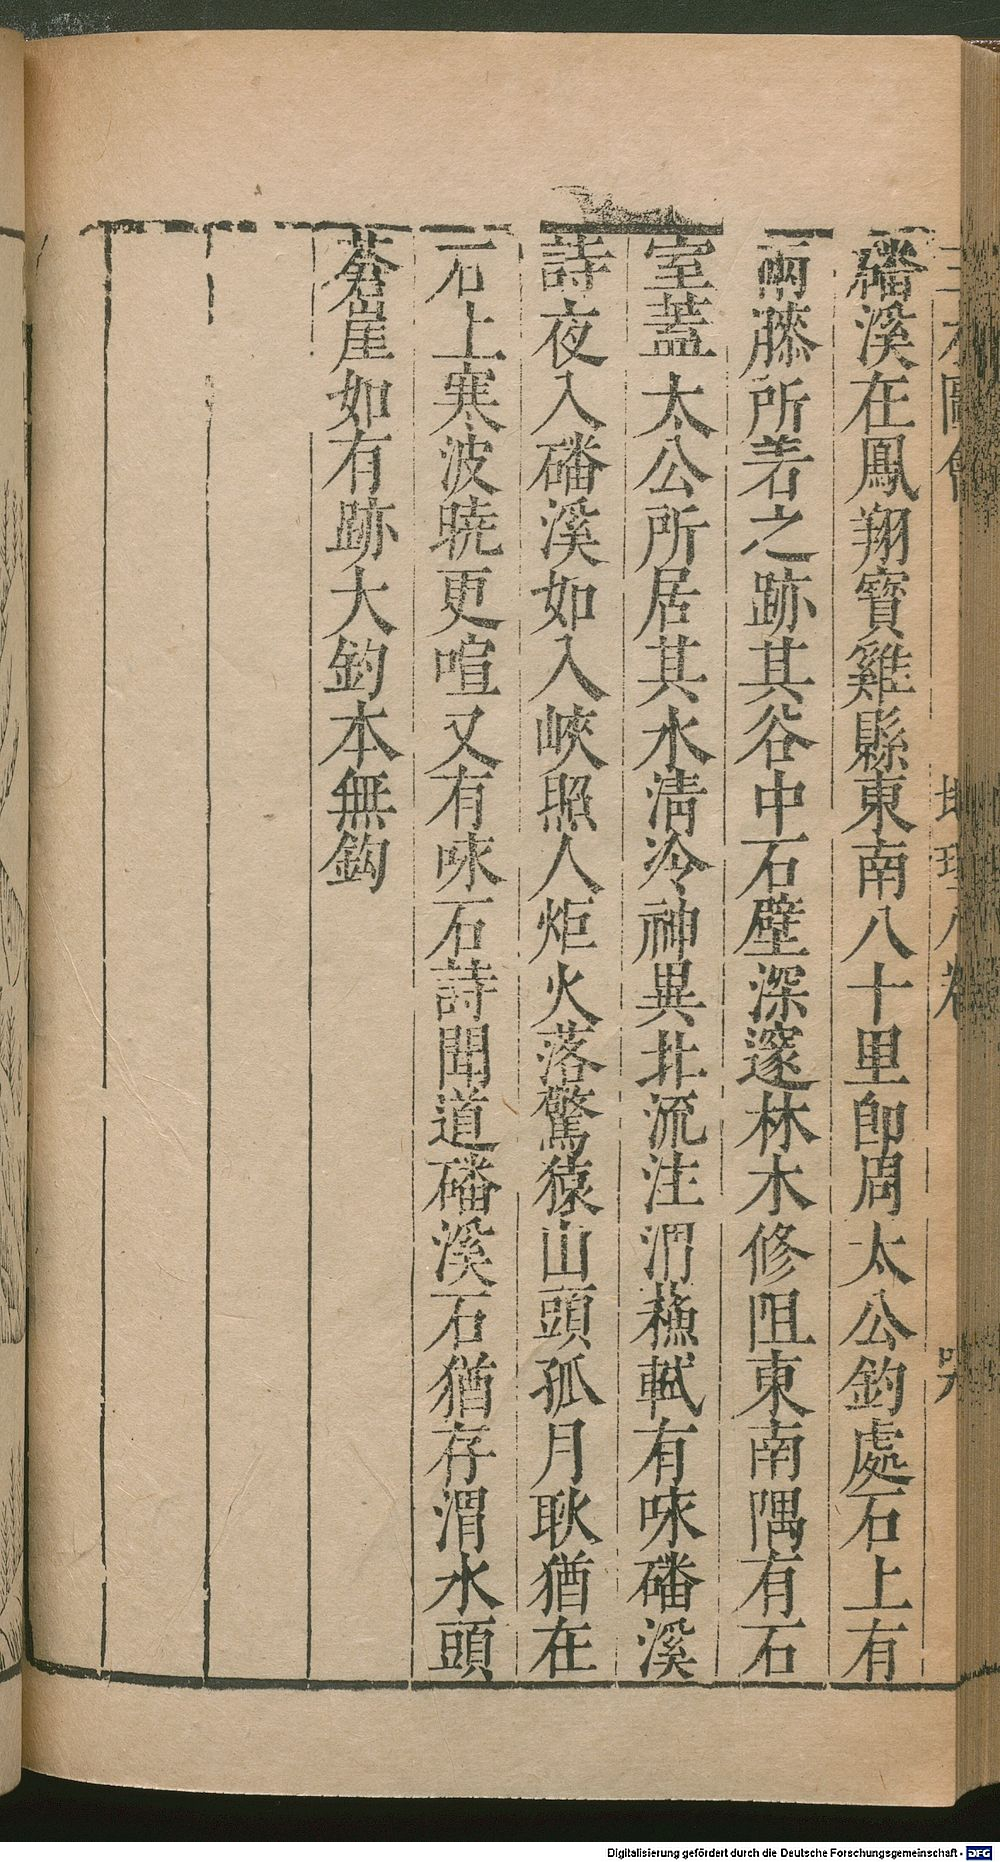 三才圖會 地理八卷
磻溪在鳳翔寶雞縣東南八十里即周太公釣處石上有
兩膝所着之跡其谷中石壁深邃林木修阻東南隅有石
室蓋太公所居其水清冷神異北流注渭蘓軾有咏磻溪
詩夜入磻溪如入峽照人炬火落驚猿山頭孤月耿猶在
石上寒波曉更喧又有咏石詩聞道磻溪石猶存渭水頭
蒼崖如有跡大釣本無鈎
Digitalisierung gefördert durch die Deutsche Forschungsgemeinschaft - DFG